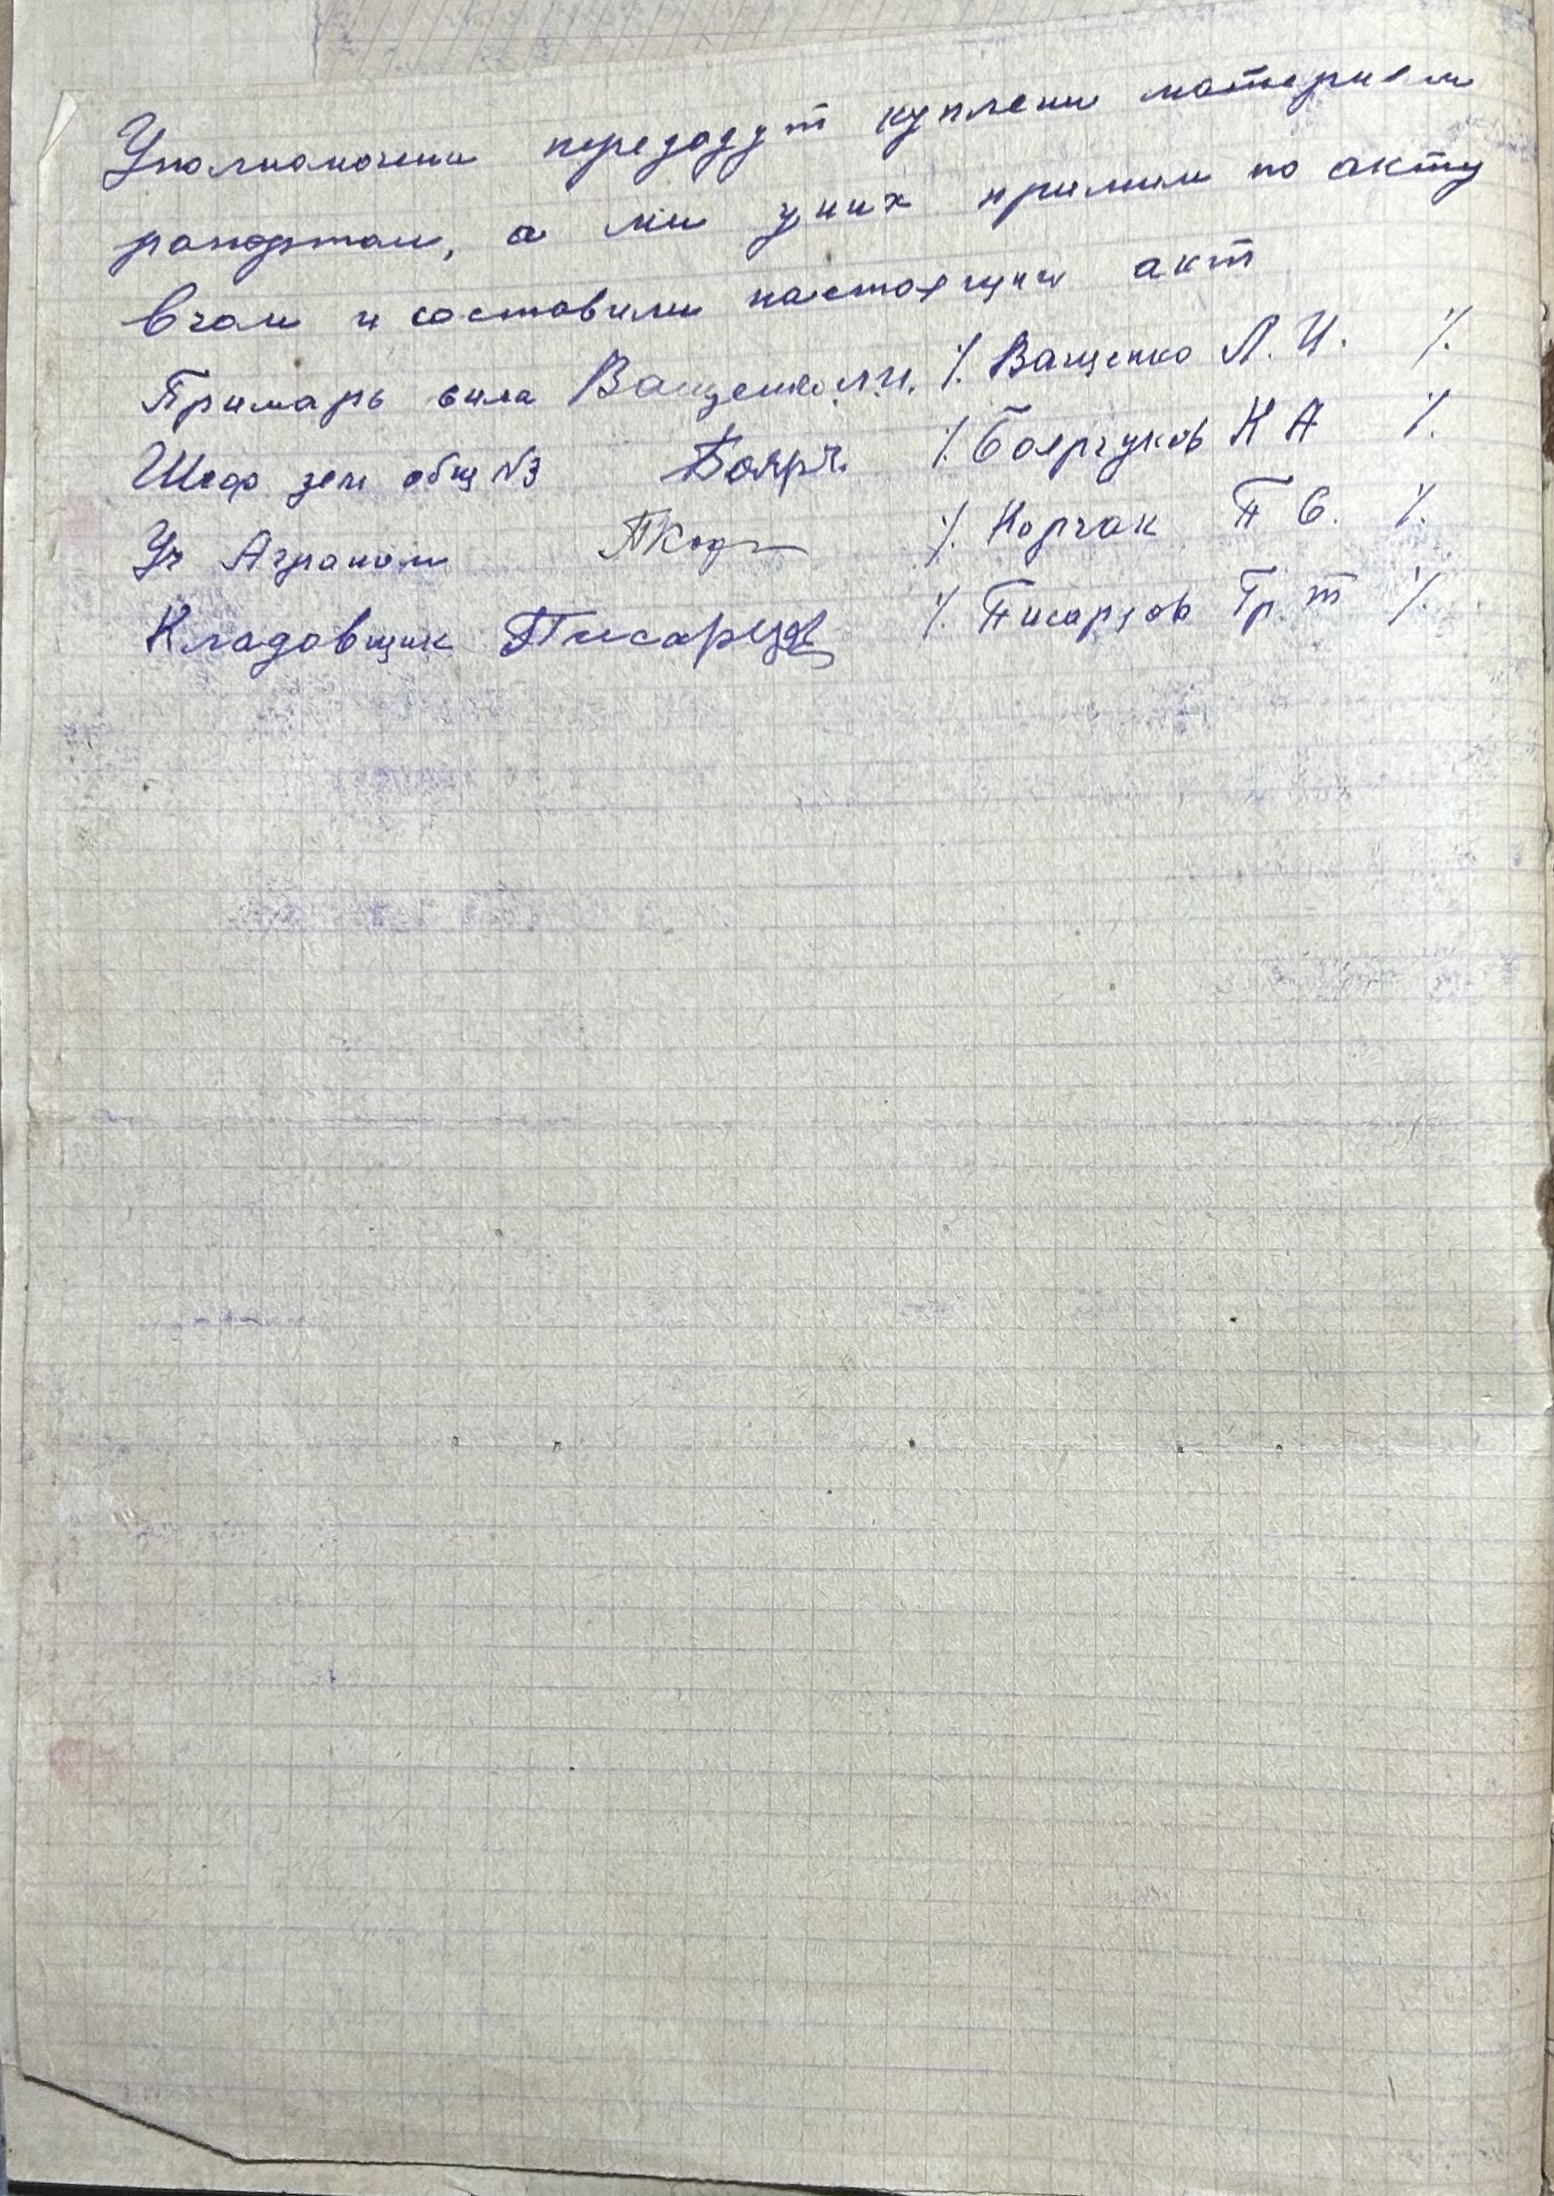 Уполномочени передадут куплени материал
рапортам, а ми у них примим по акту
в чом и составили настоящий акт
Примарь села Ващенко Л.И. /. Ващенко Л. И. /.
Шеф зем общ №3 Боярч. /. Боярчуков К А /.
Уч Аграном /. Корчак П С. /.
Кладовщик Писарцов /. Писарцов Гр. Т /.